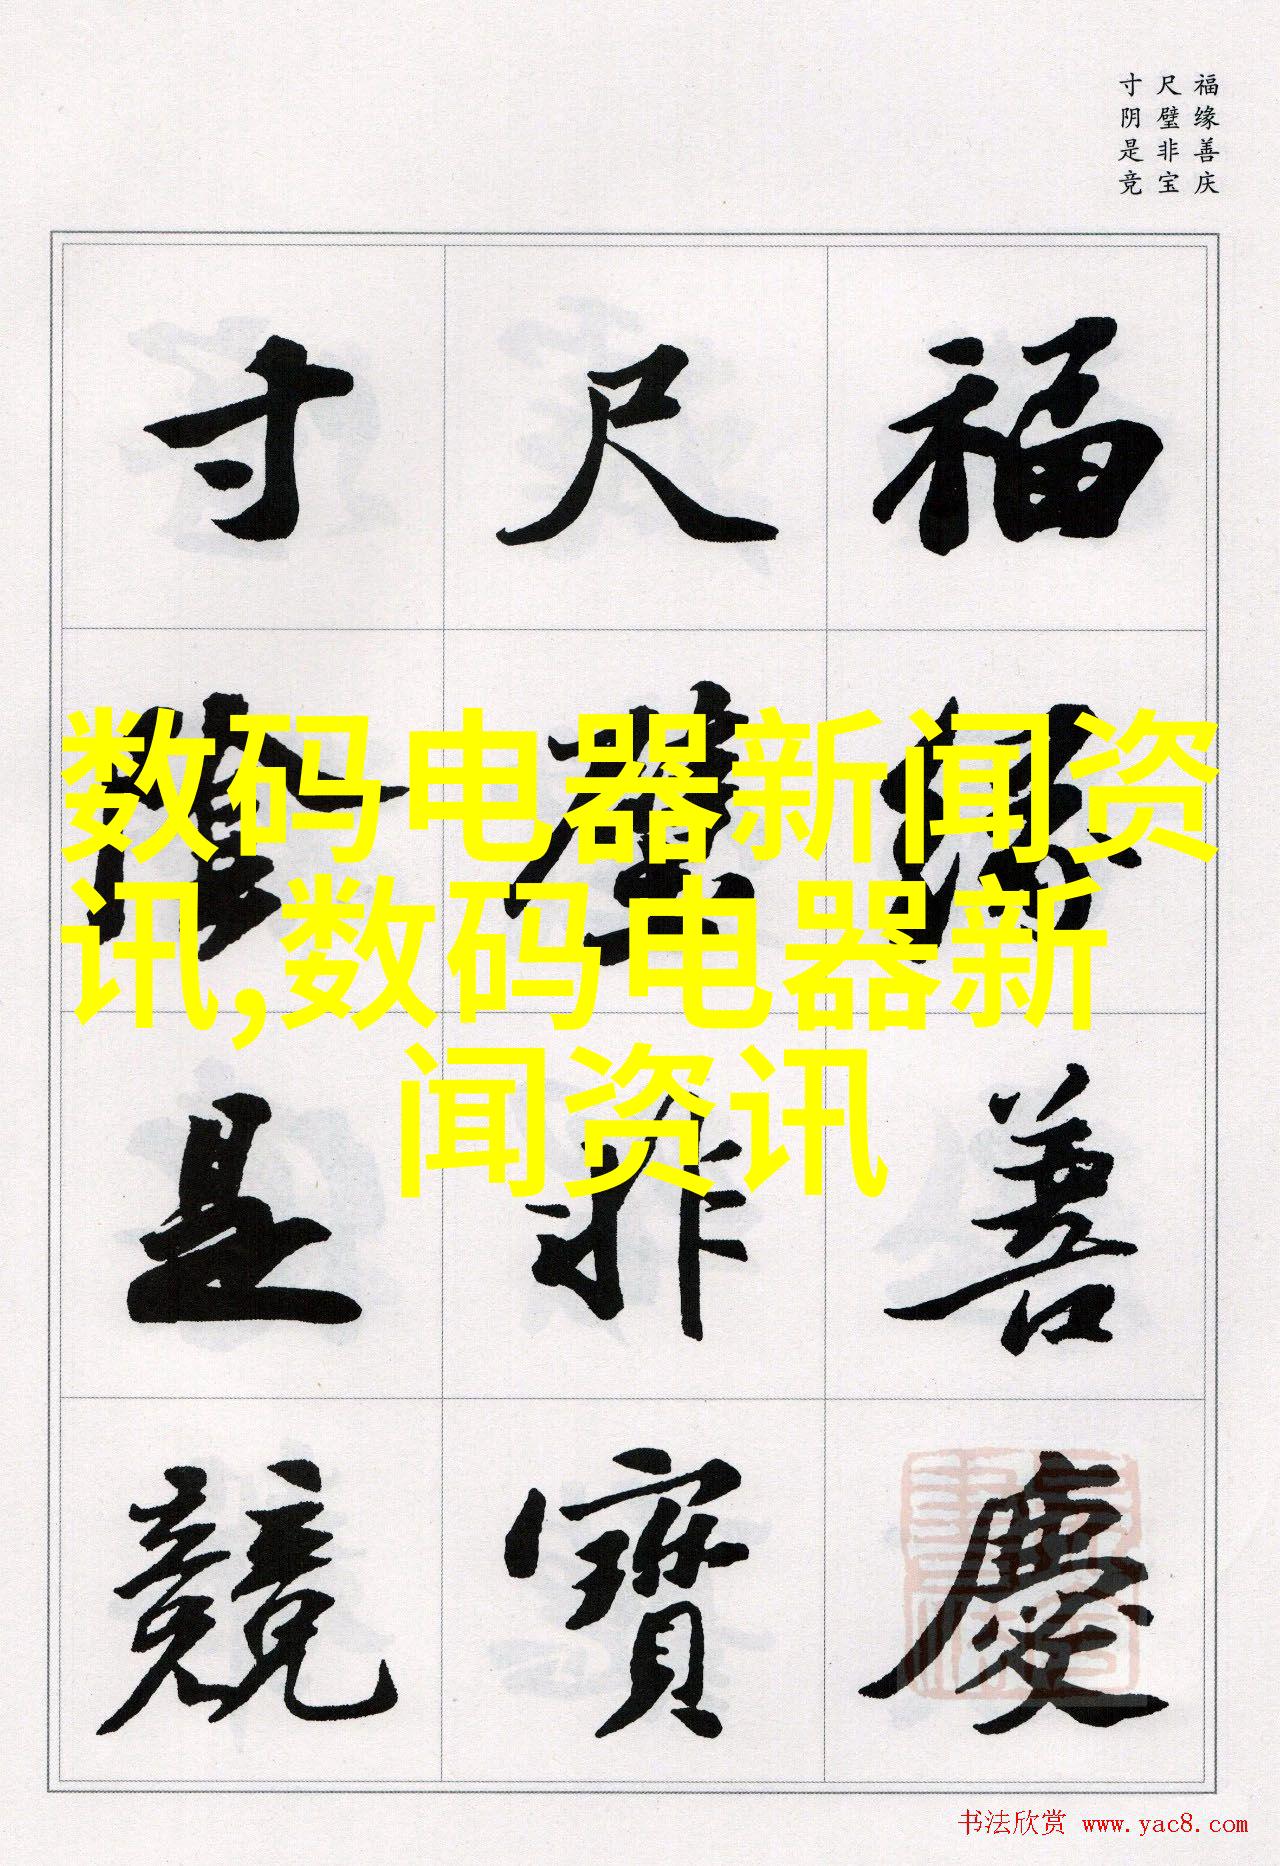 福缘善庆
尺璧非宝
寸阴是竞
福緣善慶
尺璧非寶
寸陰是競
数码电器新闻资
讯,数码电器新
闻资讯
书法欣赏 www.yac8.com